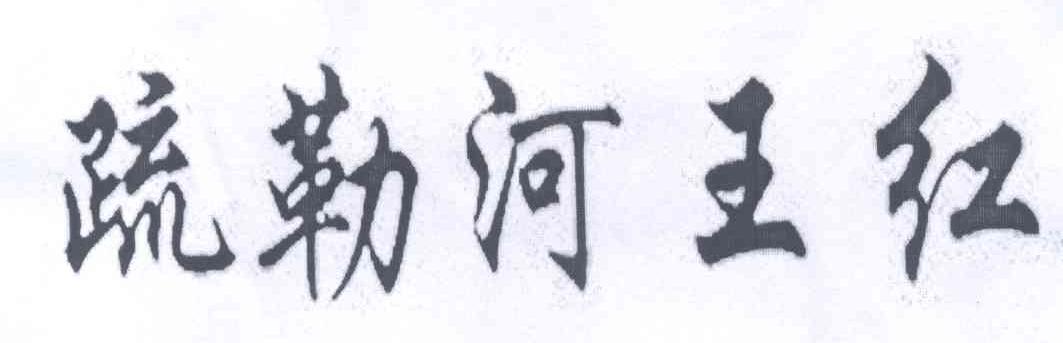 疏勒河王红